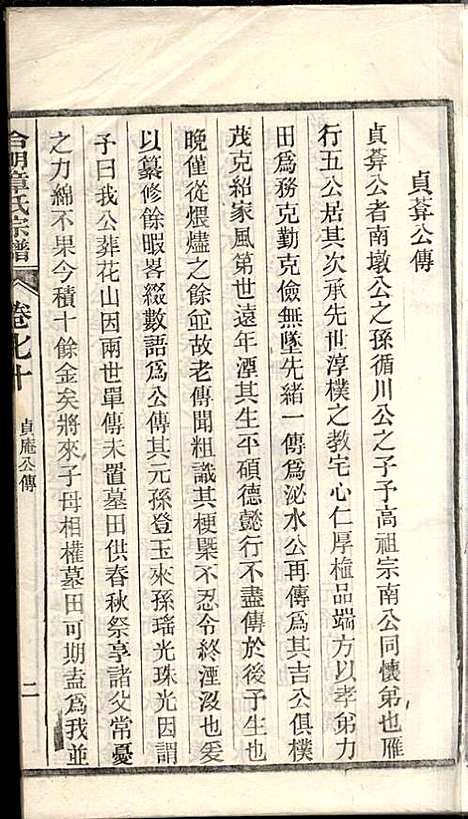 貞葊公傳
貞葊公者南墩公之孫循川公之子予高祖宗南公同懷弟也雁
行五公居其次承先世淳樸之教宅心仁厚植品端方以孝弟力
田為務克勤克儉無墜先緒一傳為泌水公再傳為其吉公俱樸
茂克紹家風第世遠年湮其生平碩德懿行不盡傳於後予生也
晚僅從煨燼之餘並故老傳聞粗識其梗槩不忍令終湮沒也爰
以纂修餘暇畧綴數語為公傳其元孫登玉來孫瑤光珠光因謂
予曰我公葬花山因兩世單傳未置墓田供春秋祭享諸父常憂
之力綿不果今積十餘金矣將來子母相權墓田可期盍為我並
章氏宗譜
貞庵公傳
二